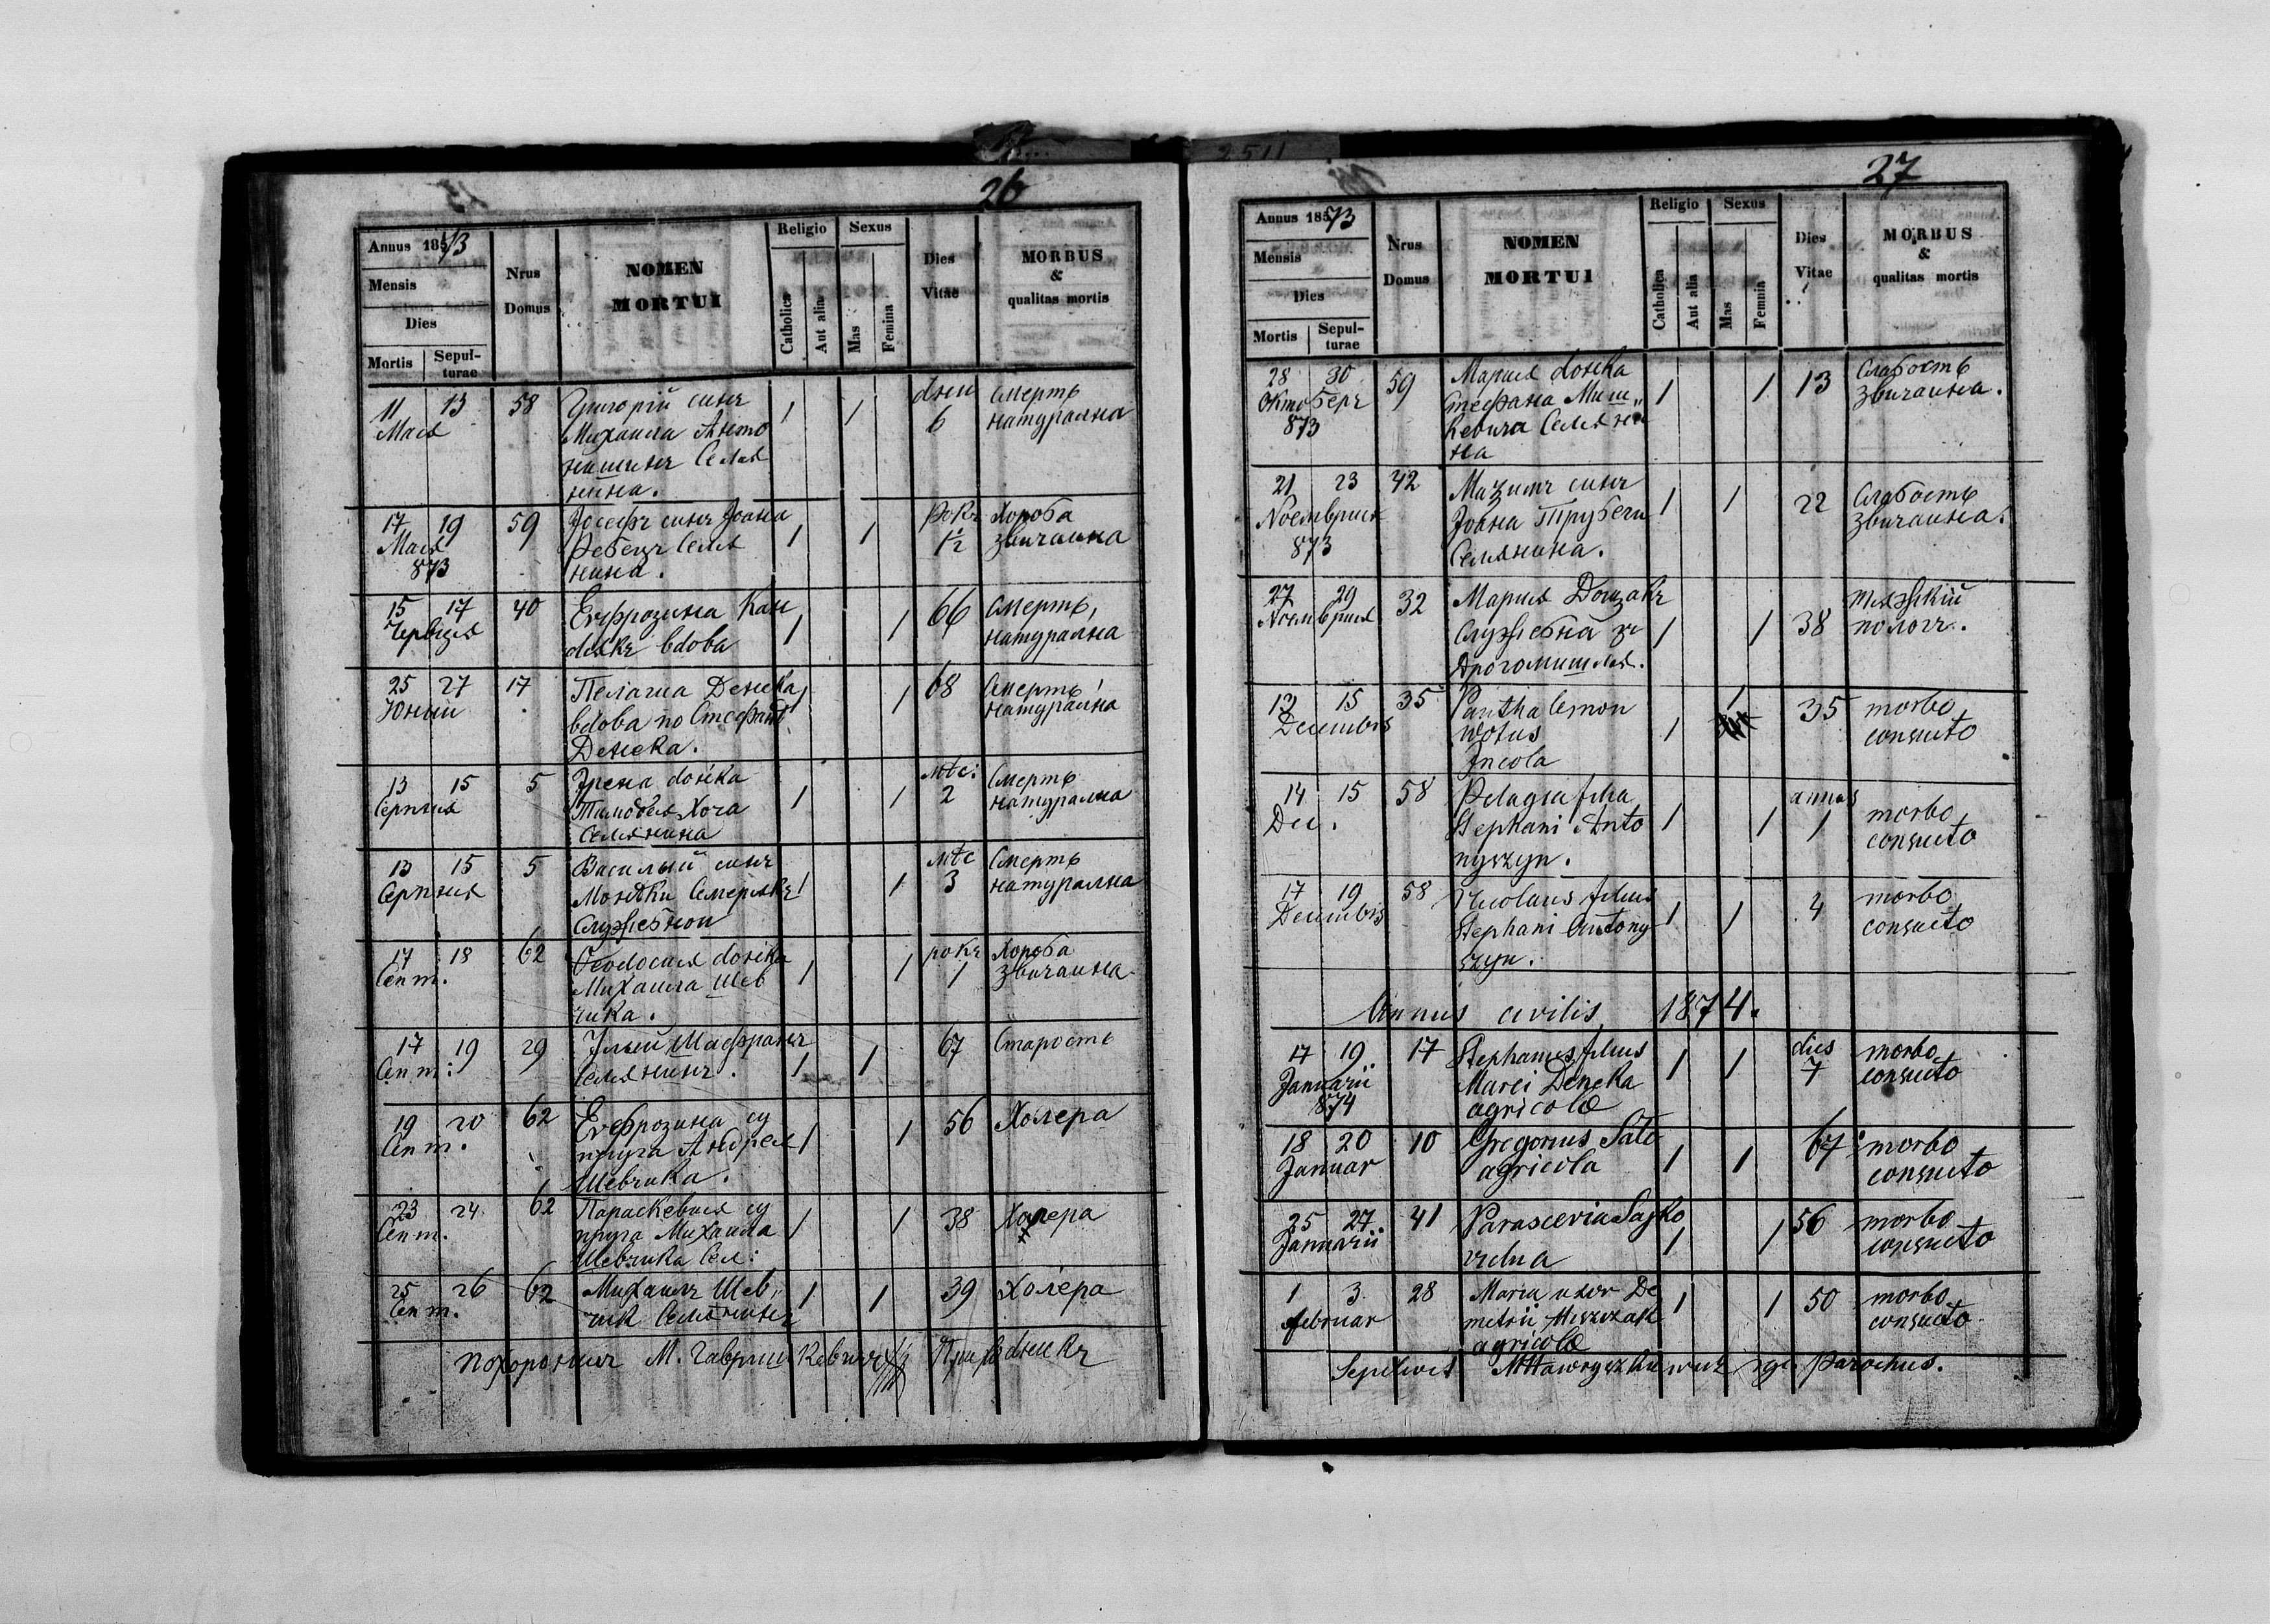 26
Annus 1873
Mensis
Dies
Mortis
Sepul-
turae
Nrus
Domus
NOMEN
MORTUI
Religio
Catholica
Aut alia
Sexus
Mas
Femina
Dies
Vitae
MORBUS
&
qualitas mortis
11 13 58 Григорій сынъ 1 1 дни смерть
Мая Михаила Анто 6 натурална
нишинъ Селя
нина.
17 19 59 Іосефъ сынъ Іоана 1 1 рокъ Хороба
Мая Ребецъ Селя 1½ звичайна
873 нина.
15 17 40 Евфрозина Кан 1 1 66 Смерть
Червця дякъ вдова натурална
25 27 17 Пелагіа Денека 1 1 68 Смерть
Юнии вдова по Стефанѣ натурална
Денека.
13 15 5 Ірена дочка 1 1 мѣс: Смерть
Серпня Тимофея Хоча 2 натурална
Селянина
13 15 5 Василый сынъ 1 1 мѣс Смерть
Серпня 3 натурална
17 18 62 Феодосия дочка 1 1 рокъ Хороба
Септ. Михаила Шев 1 звичайна
чика.
17 19 29 Ілый Шафранъ 1 1 67 Старость
Септ: Селянинъ.
19 20 62 Евфрозина су 1 1 56 Холера
Септ. пруга Андрея
Шевчика.
23 24 62 Параскевия су 1 1 38 Холера
Септ. пруга Михаила
Шевчика Сел:
25 26 62 Михаилъ Шев„ 1 1 39 Холера
Септ. чик Селянинъ
похоронилъ М. Гавришкевичъ
2511
27
Annus 1873
Mensis
Dies
Mortis
Sepul-
turae
Nrus
Domus
NOMEN
MORTUI
Religio
Catholica
Aut alia
Sexus
Mas
Femnia
Dies
Vitae
MORBUS
&
qualitas mortis
28 30 59 Мария дочка 1 1 13 Слабость
Октоберъ Стефана Миш„ звичайна.
873 кевича Селяни
на
21 23 42 Мазимъ сынъ 1 1 22 Слабость
Ноемврия Іоана Трубеги звичайна.
873 Селянина.
27 29 32 Мария 1 1 38 тяжкій
Ноемврия пологъ.
13 15 35 1 1 35 morbo
Decembris consueto
Incola
14 15 58 Pelagia filia 1 1 annus morbo
Dec. Stephani Anto 1 consueto
nyszyn.
17 19 58 Nicolaus filius 1 1 4 morbo
Decembris Stephani Antony consueto
szyn.
Annus civilis 1874.
17 19 17 Stephanus filius 1 1 dies morbo
Januarii Marci Deneka 7 consueto
874 agricolae
18 20 10 Gregorius Sato 1 1 67 morbo
Januar agricola consueto
25 27. 41 Parascevia Sajko 1 1 56 morbo
Januarii vidua consueto
1 3 28 Maria uxor De 1 1 50 morbo
februar metrii Miszczak consueto
agricolae
Sepelivit MHawryszkiewicz parochus.